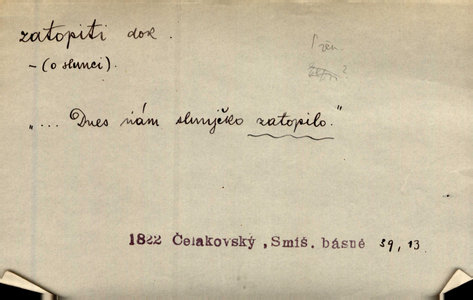 zatopiti dok.
– (o slunci).
„... Dnes nám slunjčko zatopilo.“
1822 Čelakovský, Smíš. básně 39, 13